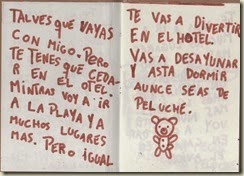 TALVES QUE VAYAS
CON MIGO. PERO
TE TENES QUE CEDA
R EN EL OTEL.
MINTRAS VOY A IR
A LA PLAYA Y A
MUCHOS LUGARES
MAS. PERO IGUAL
TE VAS A DIVERTIR
EN EL HOTEL.
VAS A DESAYUNAR
Y ASTA DORMIR
AUNCE SEAS DE
PELUCHE.